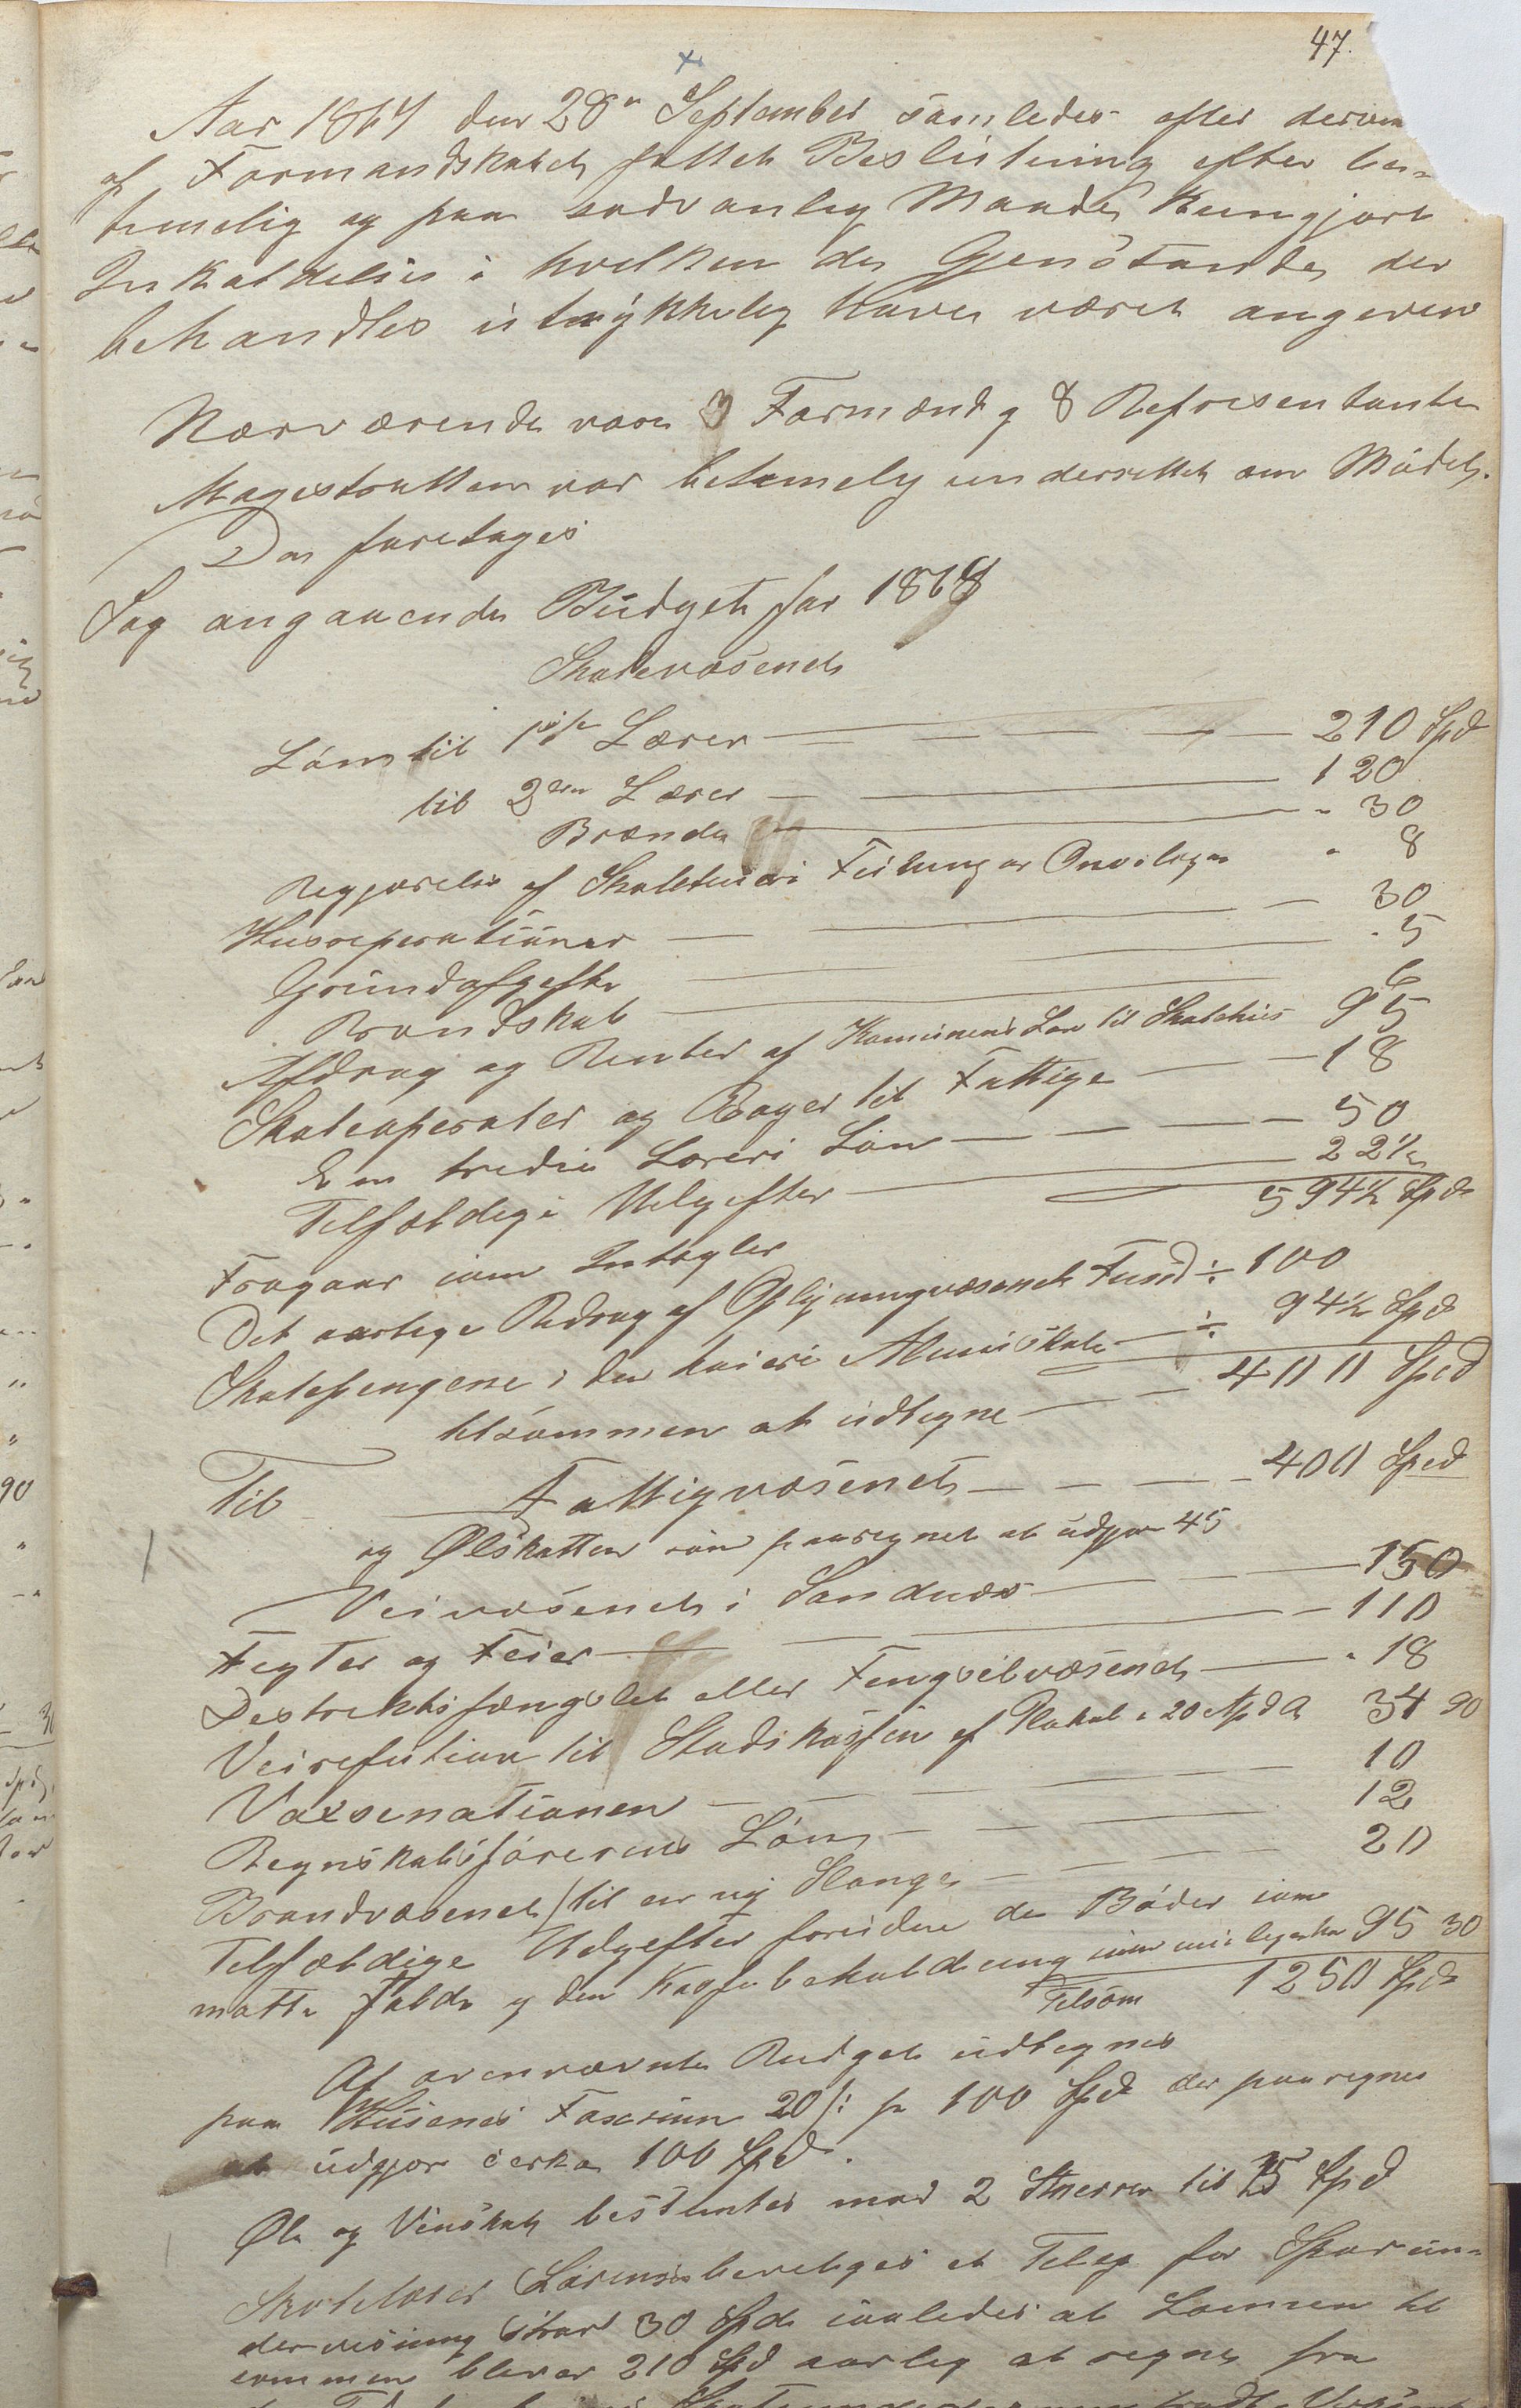 47.
Aar 1867 den 28n September samledes efter derom
af Formandskabet fattet Beslutning efter be-
timelig og paa sedvanlig Maade Kungjort
Inkaldelse i hvilken de Gjenstande der
behandles utrykkelig haver været angeven
Nærværende vare 3 Formænd og 8 Represen tanter
Magistratten var betimely underrettet om Mødet.
Da foretages
Sag angaaende Budget for 1868
Skolevæsenet
Løn til 1ste Lærer — 210 Spd
til 2den Lærer — 120
Brænde — " 30
Regjørelse af Skolehuset Feiling og Ovnslager " 8
Husreperationer — 30
Grundafgefte — " 5
Brandskat — 6
Afdrag og Renter af Komunens Laan til Skolehus 95
Skoleaperater og Bøger til Fattige — 18
En tredie Lærers Løn — 50
Telfældige Udgefter — 22½
594½ Spd
Fragaar som Intægter
Det aarlige Bedrag af Oplysningsvæsenets Fund ÷ 100
Skolepengene i den høiere Almueskole — ÷ 94½ Spd
tilsammen at udlegne — 400 Spd
Til Fattigvæsenet — 400 Sped
og Ølskatten som paaregnet at udgjøre 45
Veivæsenet i Sandnæs — 150
Fegter og Feier — 110
Destrektsfængslet eller Fengselvæsenet — " 18
Veirefution til Stadskassen af Plakat 20 Apd A 34 90
Vaxsenationen — 10
Regnskabsførerens Løn — 12
Brandvæsenet / til en ny Slange — 20
Telfældige Udgefter foruden de Bøder som
matte falde og den Kassebeholdning som mulegens har 95 30
Telsam 1250 Spd
At ovennævnte Budget udlegnes
paa Husenes Taxsium 20 ſ: pr 100 Spd der paaregnes
at udgjør cerka 100 Spd.
Øl og Vinskat bestemtes mod 2 Stemmer til 15 Spd
Skolelærer Larensen beveliges et Teleg for Skoleun-
dervisning stort 30 Spd saaledes at Lønnen til
sammen blever 210 Spd aarleg at regne fra